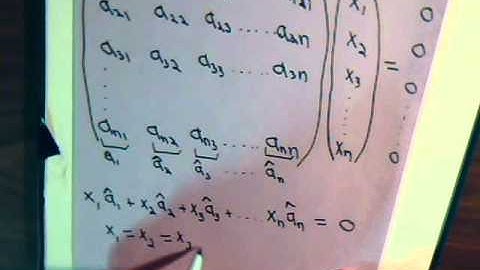 a₂₁ a₂₂ a₂₃ ..... a₂ₙ x₁ 0
a₃₁ a₃₂ a₃₃ ..... a₃ₙ x₂ 0
x₃ = 0
aₙ₁ aₙ₂ aₙ₃ ..... aₙₙ xₙ 0
â₁ â₂ â₃ ..... âₙ
x₁â₁ + x₂â₂ + x₃â₃ + ..... xₙâₙ = 0
x₁ = x₂ = x₃